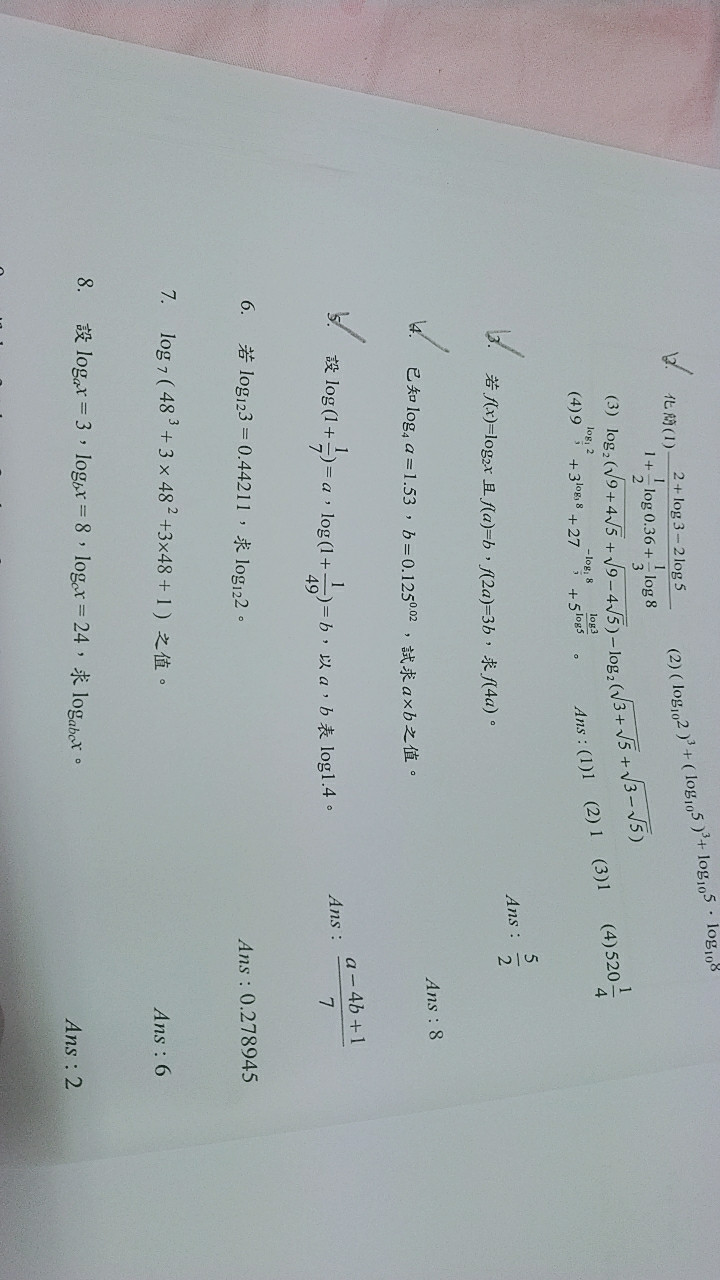 2. 化簡(1) \frac{2+\log 3-2\log 5}{1+\frac{1}{2}\log 0.36+\frac{1}{3}\log 8} (2) ( log₁₀2 )³ + ( log₁₀5 )³ + log₁₀5 · log₁₀8
(3) log₂(√(9+4√5) + √(9−4√5)) − log₂(√(3+√5) + √(3−√5))
(4) 9 + 3 + 27 + 5^{\frac{log3}{log5}} 。 Ans : (1)1 (2) 1 (3)1 (4)520\frac{1}{4}
3. 若 f(x)=log₂x 且 f(a)=b,f(2a)=3b,求 f(4a)。 Ans : \frac{5}{2}
4. 已知 log₄ a = 1.53,b = 0.125^{0.02},試求 a×b 之值。 Ans : 8
5. 設 log(1+\frac{1}{7}) = a,log(1+\frac{1}{49}) = b,以 a,b 表 log1.4。 Ans : \frac{a−4b+1}{7}
6. 若 log₁₂3 = 0.44211,求 log₁₂2。 Ans : 0.278945
7. log ₇ ( 48³ + 3 × 48² +3×48 + 1 ) 之值。 Ans : 6
8. 設 logₐx = 3,log_b x = 8,log_c x = 24,求 log_{abc}x。 Ans : 2